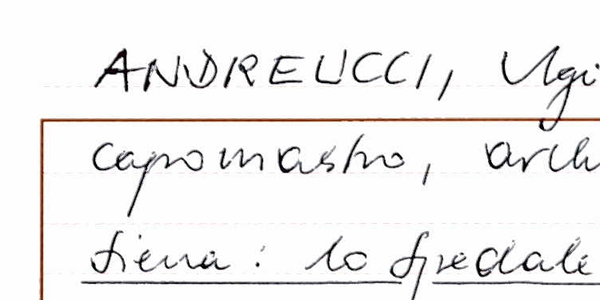 ANDREUCCI, Ugi
capomastro, arch
Siena: lo Spedale